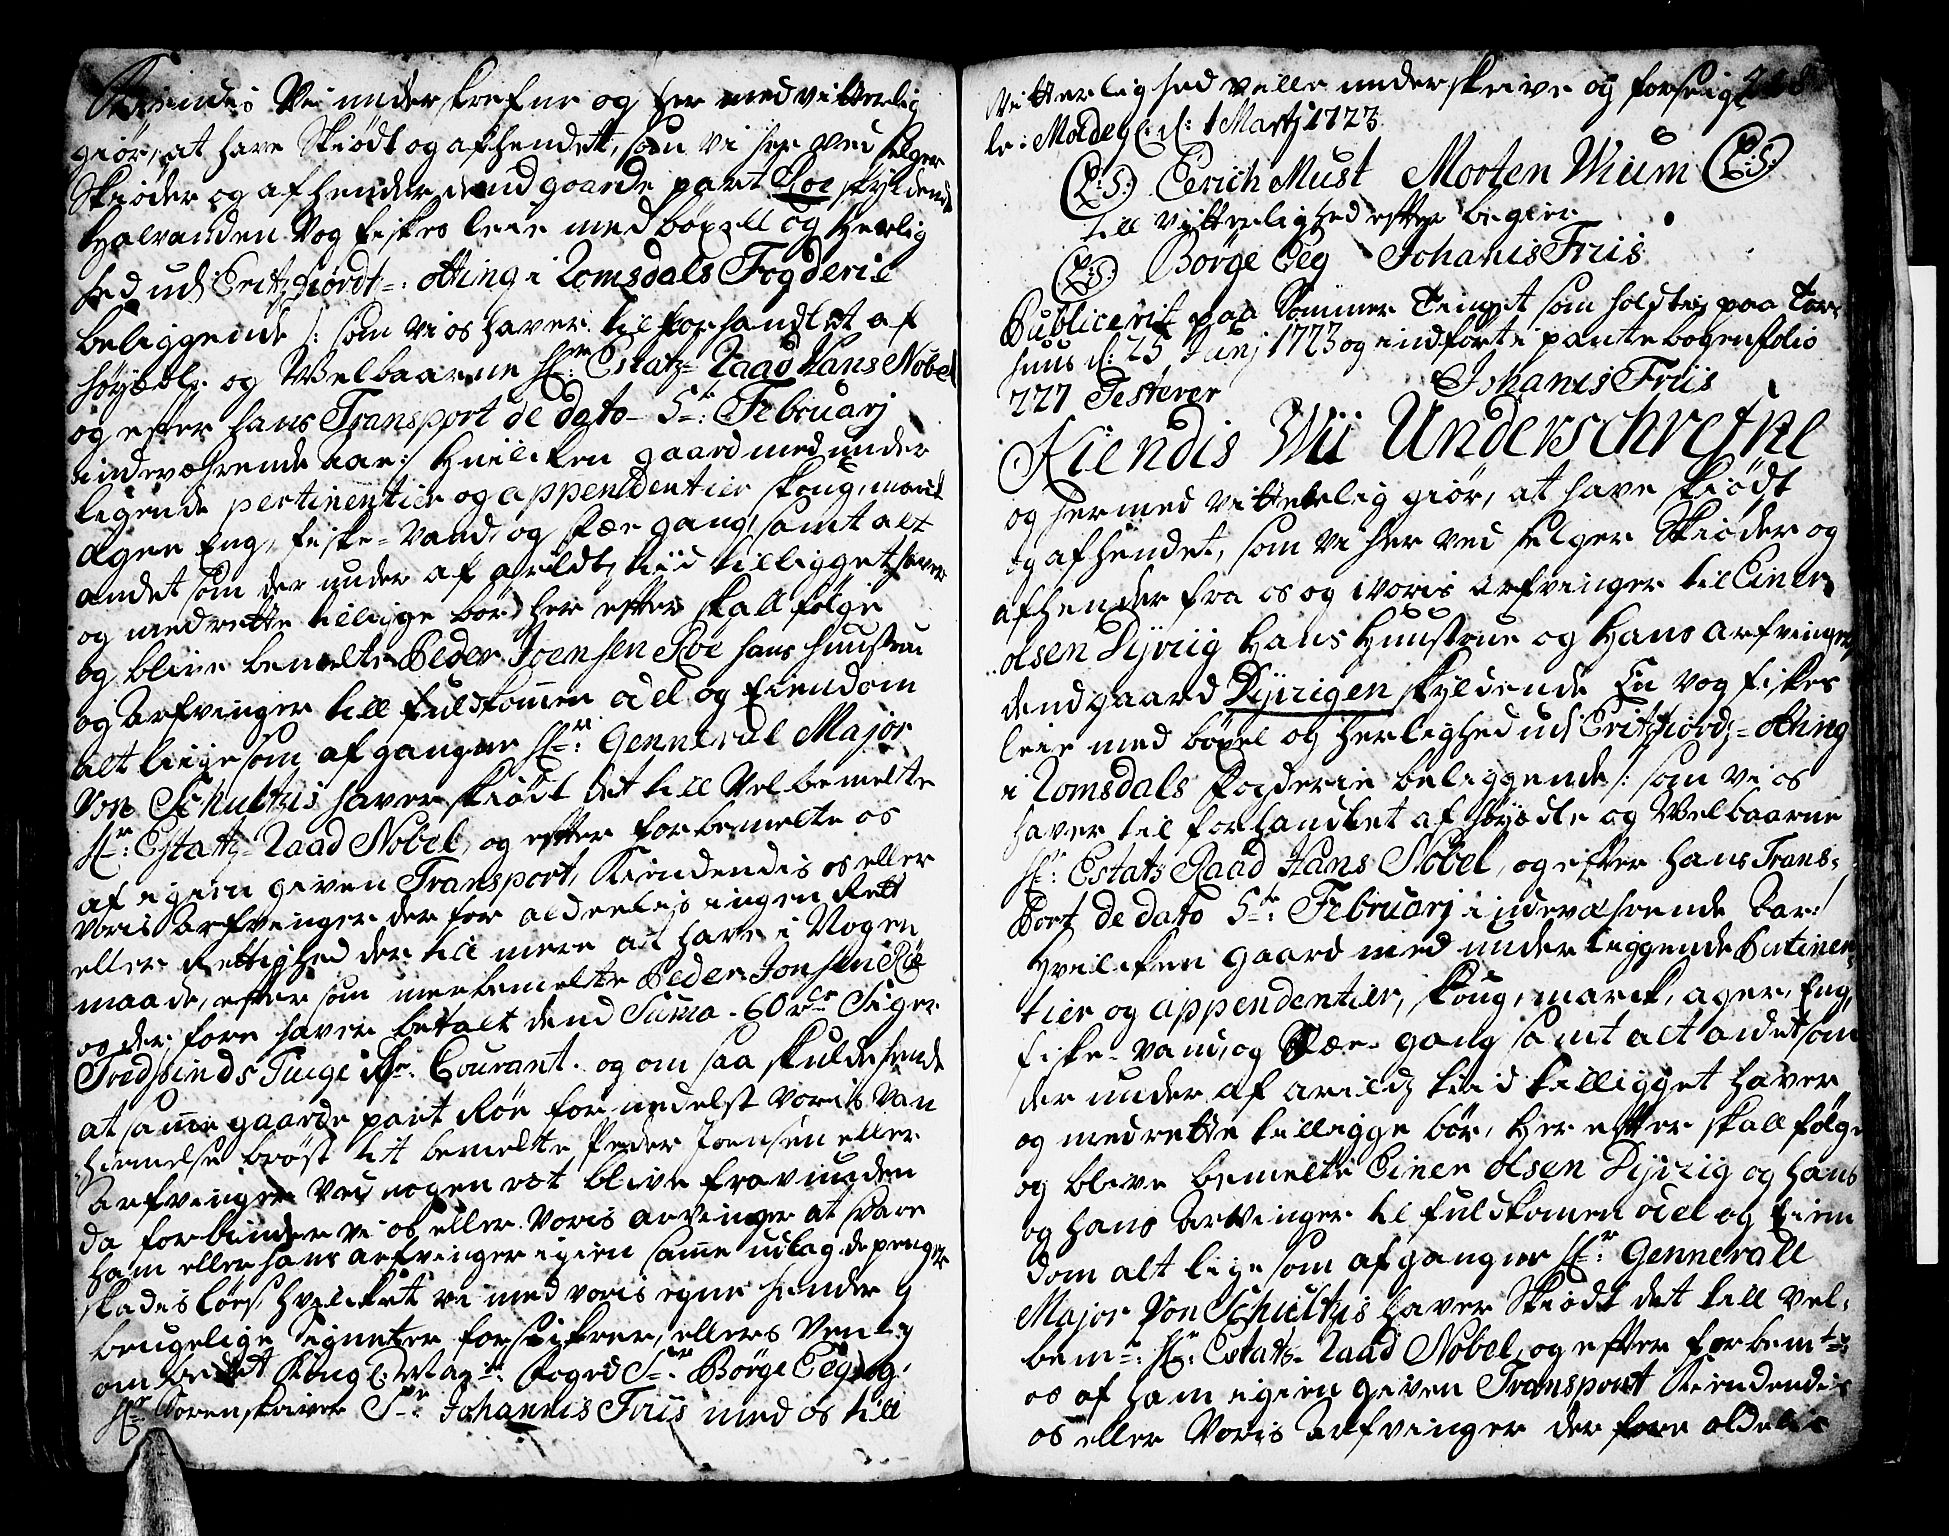 Kiendis Vi underskrefne og her med vitterlig
giør, at have Skiødt og afhendet, som vi her ved selger
Skiøder og afhender dend gaarde part Roe skyldende
Halvanden Vog fiskes leie med böxell og Herlig
hed udj Eritzfiordt=: otting i Romsdals Fogderie
beliggende /: som vi os haver til forhandlet af
høyædle og Welbaarne Hr: Estatz= Raad Hans Nobel
og efter hans Transport de dato 5te: Februarj
indeværende aar :/ Hvilcken gaard med under
liggende pertinentier og appendentier skoug, marck
Ager Eng, fiske= Vand, og fæe gang, samt alt
andet som der under af arildtz tiid tilligget haver
og med rette tilligge bör, her efter skall følge
og blive bemelte Peder Joensen Roe hans huustrue
og Arfvinger till fuldkommen odel og Eiendom
alt liigesom afgangne Hr: Gennerael Major
Von Schultzis haver skiödt det till Velbemelte
Hr: Estatz= Raad Nobel, og efter forbemelte os
af igien given Transport, Kiendendis os eller
Voris Arfvinger der for aldeelis ingen Rett
eller Rettighed der till mere at have i Nogen
maade, efter som meerbemelte Peder Jonsen Roe
os der fore haver betalt dend Suma 60 rdr Siger
Tredsinds Tuige Rdr. Courant. og om saa skulde hende
at samme gaarde part Röe for nedelst Voris Van
hiemelse bröst dit bemelte Peder Joensen eller
Arfvinger Ved nogen ret blive fravunden
da forbinder vi os eller Voris arvinger at svare
Ham eller hans arfvinger igien samme udlagde penger
skadeslöes, hvilcket vi med voris egne hender og
brugelige signeter forsickrer, ellers Venlig
ombedet Kongl: May:tz: Foged Sr: Börge Eeg og
Hr Sorenskriver Sr: Johannis Friis med os till

218
Vitterlighed ville underskrive og forseigl
le. Molde g. d: 1 Martj 1723
(L:S:) Eerich Must Morten Wium (L:S:)
till vitterlighed efter begier
(L:S:) Börge Eeg Johanis Friis
Publicerit paa Sommer Tinget som holdtes paa Tor=
huus d: 25 Junj 1723 og indfört i pantebogen folio
227 Testerer Johanis Friis
Kiendis Wii Underschrefne
og hermed vitterlig giör, at have skiödt
og afhendet, som vi her ved selger Skiöder og
afhender fra os og voris arfvinger til Einer
olsen Dyrig Hans Huustrue og Hans arfvinger
dend gaard Dyrigen skyldende En vog fiskes
leie med böxel og herlighed udj Eritzfiordz= otting
i Romsdals fogderie beliggende /: som vi os
haver til forhandlet af höyædle og Velbaarne
Hr: Estats Raad Hans Nobel, og efter hans Trans=
Port de dato 5te: Februarj indeværende Aar :/
Hvilcken gaard med underliggende Pertinen=
tier og appendentier, skoug, marck, ager, Eng,
fiske= vand, og Fæe= gang samt alt andet som
der under af arildz tiid tilligget haver
og med rette tilligge bör, Her efter skall følge
og blive bemelte Einer olsen Dyrig og hans
og hans Arvinger til fuldkomen odel og Eien
dom alt lige som afgangne Hr: Gennerall
Major Von Schultzis haver Skiödt det till Vel=
bemte: Hr: Estats= Raad Nobel, og efter forbemte:
os af ham igien given Transport Kiendendis
os eller Voris Arfvinger der fore aldelis